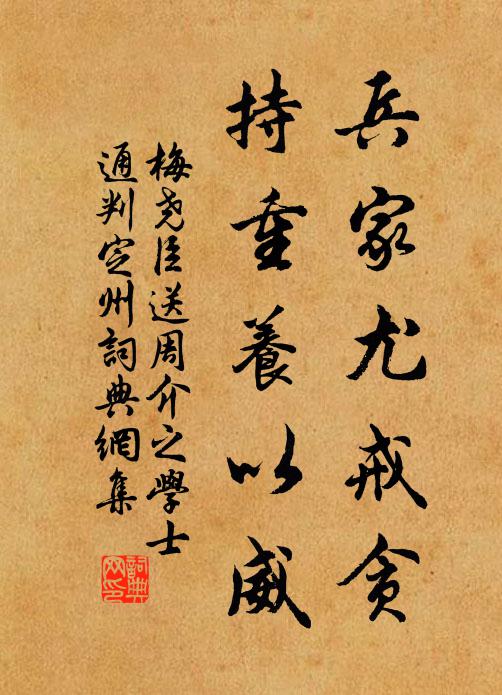 兵家尤戒贪
持重養以威
梅尧臣送周介之學士
通判定州詞典網集
詞典
网印